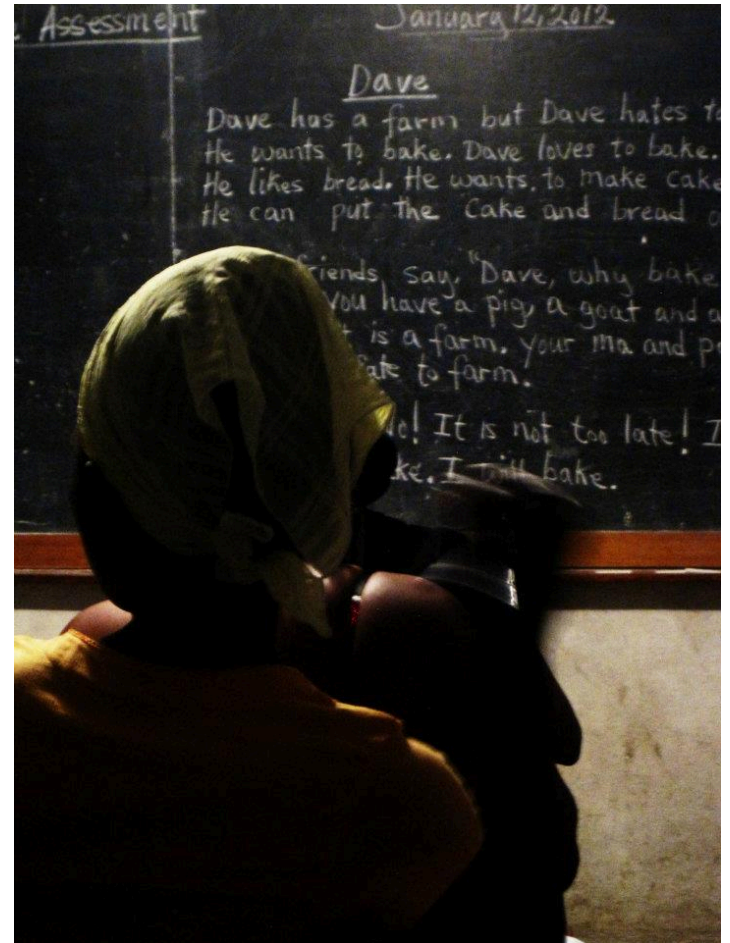 Assessment
January 12, 2012
Dave
Dave has a farm but Dave hates
He wants to bake. Dave loves to bake.
He likes bread. He wants. to make cake
He can put the Cake and bread
friends say, "Dave, why bake
you have a pig, a goat and a
is a farm. your ma and
to farm.
It is not too late! I
I will bake.